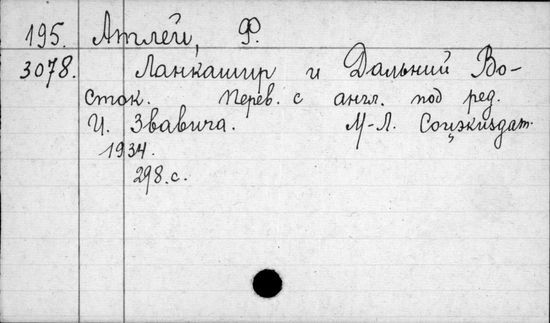 195. Атлей, Ф.
3078. Ланкашир и Дальний Во-
сток. Перев. с англ. под ред.
И. Звавича. М-Л. Соцэкиздат.
1934.
298.с.